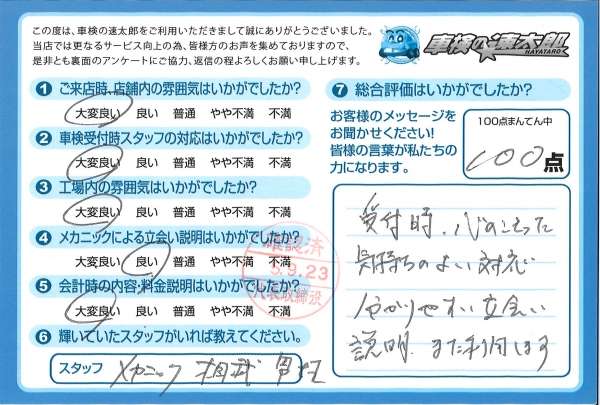 この度は、車検の速太郎をご利用いただきまして誠にありがとうございました。
当店では更なるサービス向上の為、皆様方のお声を集めておりますので、
是非とも裏面のアンケートにご協力、返信の程よろしくお願い申し上げます。
車検の速太郎
HAYATARO
1 ご来店時、店舗内の雰囲気はいかがでしたか?
大変良い 良い 普通 やや不満 不満
2 車検受付時スタッフの対応はいかがでしたか?
大変良い 良い 普通 やや不満 不満
3 工場内の雰囲気はいかがでしたか?
大変良い 良い 普通 やや不満 不満
4 メカニックによる立会い説明はいかがでしたか?
大変良い 良い 普通 やや不満 不満
5 会計時の内容・料金説明はいかがでしたか?
大変良い 良い 普通 やや不満 不満
6 輝いていたスタッフがいれば教えてください。
スタッフ メカニック 相武
確認済
5.9.23
代表取締役
7 総合評価はいかがでしたか?
お客様のメッセージを
お聞かせください!
皆様の言葉が私たちの
力になります。
100点まんてん中
100点
受付時、心のこもった
気持ちのよい対応
わかりやすい立会い
説明、また利用します